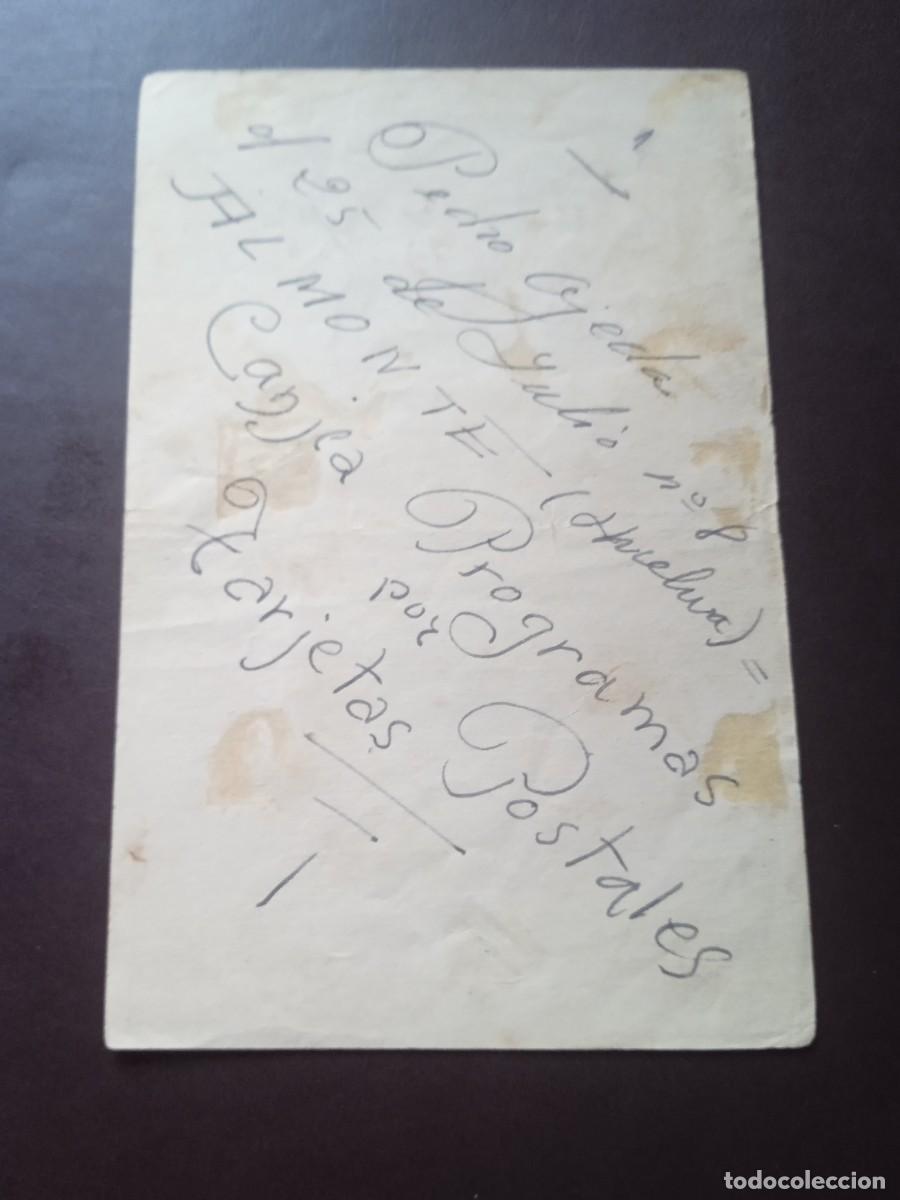 Pedro Ojeda
d 25 de Julio nº 8
ALMONTE (Huelva) =
Canjea Programas
por
Tarjetas Postales
todocoleccion